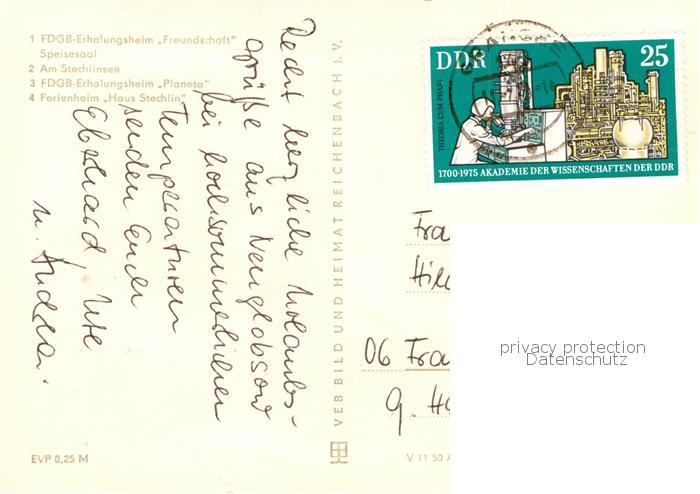 1 FDGB-Erholungsheim „Freundschaft"
Speisesaal
2 Am Stechlinsee
3 FDGB-Erholungsheim „Planeta"
4 Ferienheim „Haus Stechlin"
Recht herzliche Urlaubs-
grüße aus Neuglobsow
bei hochsommerlichen
Temperaturen
senden Euch
Eberhard Ute
u. Andrea.
EVP 0,25 M
VEB BILD UND HEIMAT REICHENBACH I. V.
V 11 50 A
DDR 25
THEORIA CUM PRAXI
1700-1975 AKADEMIE DER WISSENSCHAFTEN DER DDR
Fra
Hil
06 Fra
9. Ha
privacy protection
Datenschutz